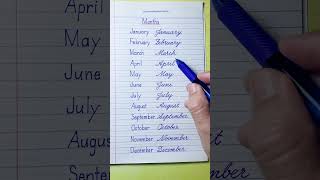 Months
January January
February February
March March
April April
May May
June June
July July
August August
September September
October October
November November
December December